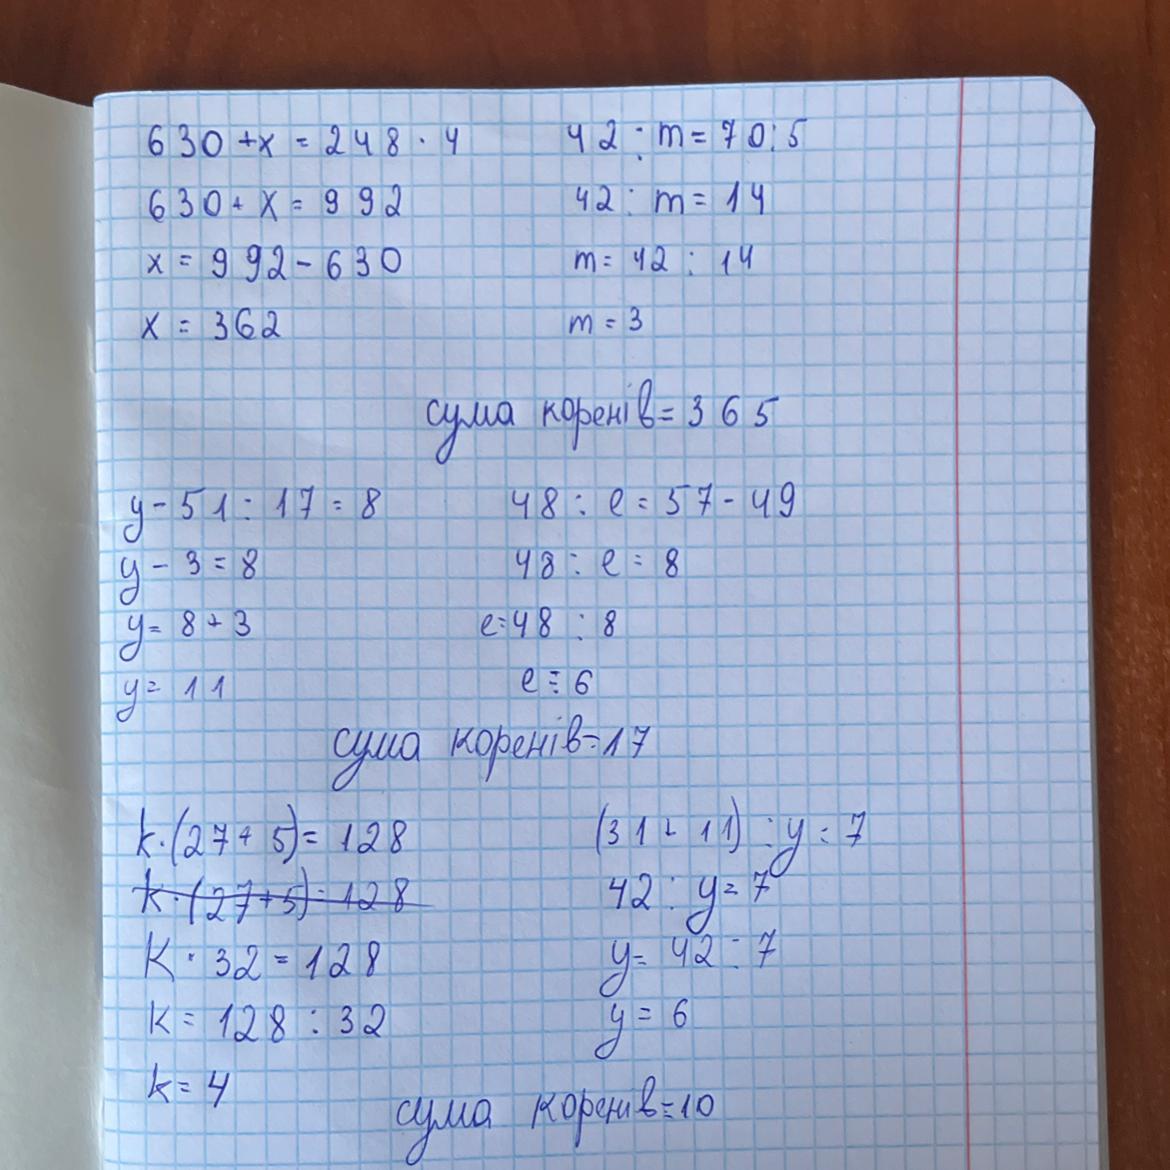 630 + x = 248 · 4
42 : m = 70 : 5
630 + x = 992
42 : m = 14
x = 992 - 630
m = 42 : 14
x = 362
m = 3
сума коренів = 365
y - 51 : 17 = 8
48 : e = 57 - 49
y - 3 = 8
48 : e = 8
y = 8 + 3
e = 48 : 8
y = 11
e = 6
сума коренів = 17
k · (27 + 5) = 128
(31 + 11) : y = 7
k · (27 + 5) = 128
42 : y = 7
K · 32 = 128
y = 42 : 7
k = 128 : 32
y = 6
k = 4
сума коренів = 10